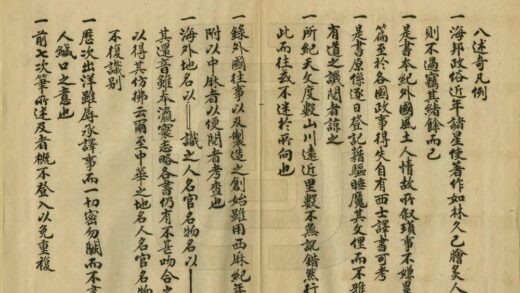 八述奇凡例
一海邦政俗近年諸星使著作如林久已膾炙人
則不過竊其緒餘而已
一是書本紀外國風土人情故所叙瑣事不嫌累
篇至於各國政事得失自有西士譯書可考
一是書原係逐日登記藉驅睡魔其文俚而不
有道之誚閱者諒之
一所紀天文度數山川遠近里數不無訛錯然行
此而往或不迷於所向也
一錄外國往事以及製造之創始雖用西厤紀年
附以中厤者以便閱者考查也
一海外地名以——識之人名官名物名以—
其還音雖本瀛寰志略各書仍有不甚吻合之
以得其仿佛云爾至中華之地名人名官名物
不復識別
一歷次出洋雖辱承譯事而一切密勿闕而不書
人緘口之意也
一前七次筆所述及者概不登入以免重複